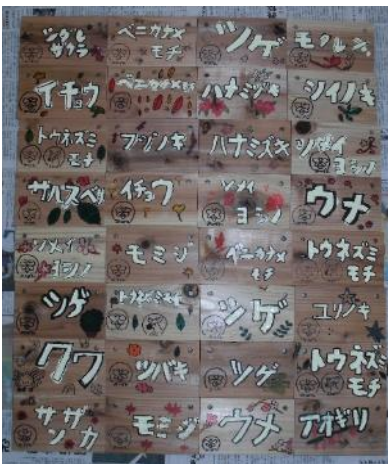 シダレ
ザクラ
ベニカナメ
モチ
ツゲ
モクレン
イチョウ
ベニカナメモチ
ハナミズキ
シイノキ
トウネズミ
モチ
ハナミズキ
ソメイ
ヨシノ
サルスベリ
イチョウ
ソメイ
ヨシノ
ウメ
ソメイ
ヨシノ
モミジ
ベニカナメ
モチ
トウネズミ
モチ
ツゲ
トウネズミモチ
ツゲ
ユリノキ
クワ
ツバキ
ツゲ
トウネズミ
モチ
サザ
ンカ
モミジ
ウメ
アオギリ